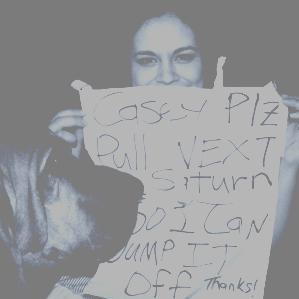 Casey Plz
Pull NEXT
Saturn
So I Can
Jump It
Off Thanks!